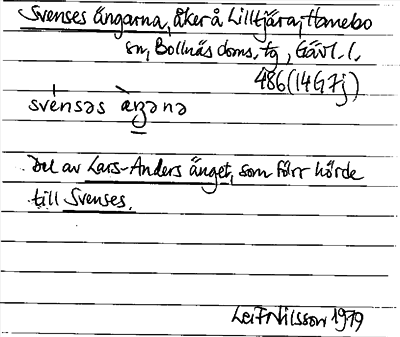 Svenses ängarna, åker å Lilltjära, Hanebo
sn, Bollnäs doms. tg, Gävl. l.
486 (14G7j)
svénsəs àŋənə
Del av Lars-Anders änget, som förr hörde
till Svenses.
Leif Nilsson 1979